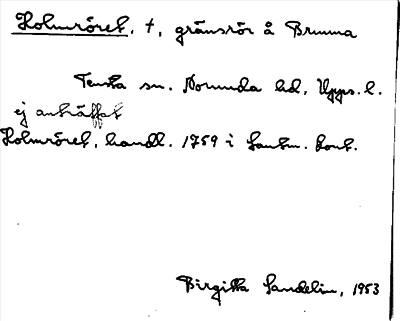 Holmröret, †, gränsrör å Brunna
Tensta sn. Norunda hd, Upps. l.
ej anträffat
Holmröret, handl. 1759 i Lantm. kont.
Birgitta Sandelin, 1953